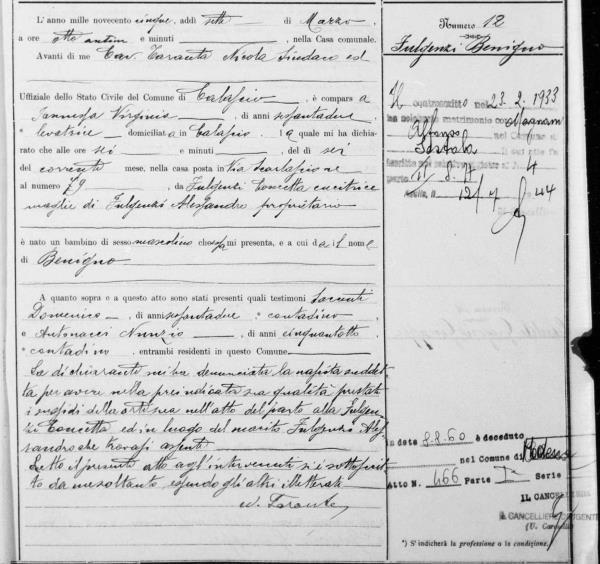 L'anno mille novecento cinque, addì sette di Marzo,
a ore otto antim e minuti , nella Casa comunale.
Avanti di me Cav. Taranta Nicola Sindaco ed
Uffiziale dello Stato Civile del Comune di Calascio, è comparsa
Jannessa Virginia, di anni sessantadue
levatrice domiciliata in Calascio, la quale mi ha dichia-
rato che alle ore sei e minuti , del dì sei
del corrente mese, nella casa posta in Via
al numero 79, da Fulgenzi Concetta cucitrice
moglie di Fulgenzi Alessandro proprietario
è nato un bambino di sesso mascolino che essa mi presenta, e a cui dà il nome
di Benigno
A quanto sopra e a questo atto sono stati presenti quali testimoni
Domenico, di anni sessantadue contadino
e Antonacci Nunzio, di anni cinquantotto
contadino, entrambi residenti in questo Comune.
La dichiarante mi ha denunciata la nascita suddet-
ta per avere nella preindicata sua qualità prestati
i sussidi della arte sua nell'atto del parto alla Fulgen-
zi Concetta ed in luogo del marito Fulgenzi Ales-
sandro che trovasi assente
Letto il presente atto agl'intervenuti si è sottoscrit-
to da me soltanto essendo gli altri illetterati
N. Taranta
Numero 12
Fulgenzi Benigno
Il contrascritto nel 23.2.1933
ha celebrato matrimonio con
nel Comune di
4
12/4 44
In data 8.8.60 è deceduto
nel Comune di Modena
Atto N. 466 Parte I Serie
IL CANCELLIERE
IL CANCELLIERE DIRIGENTE
*) S'indicherà la professione o la condizione.